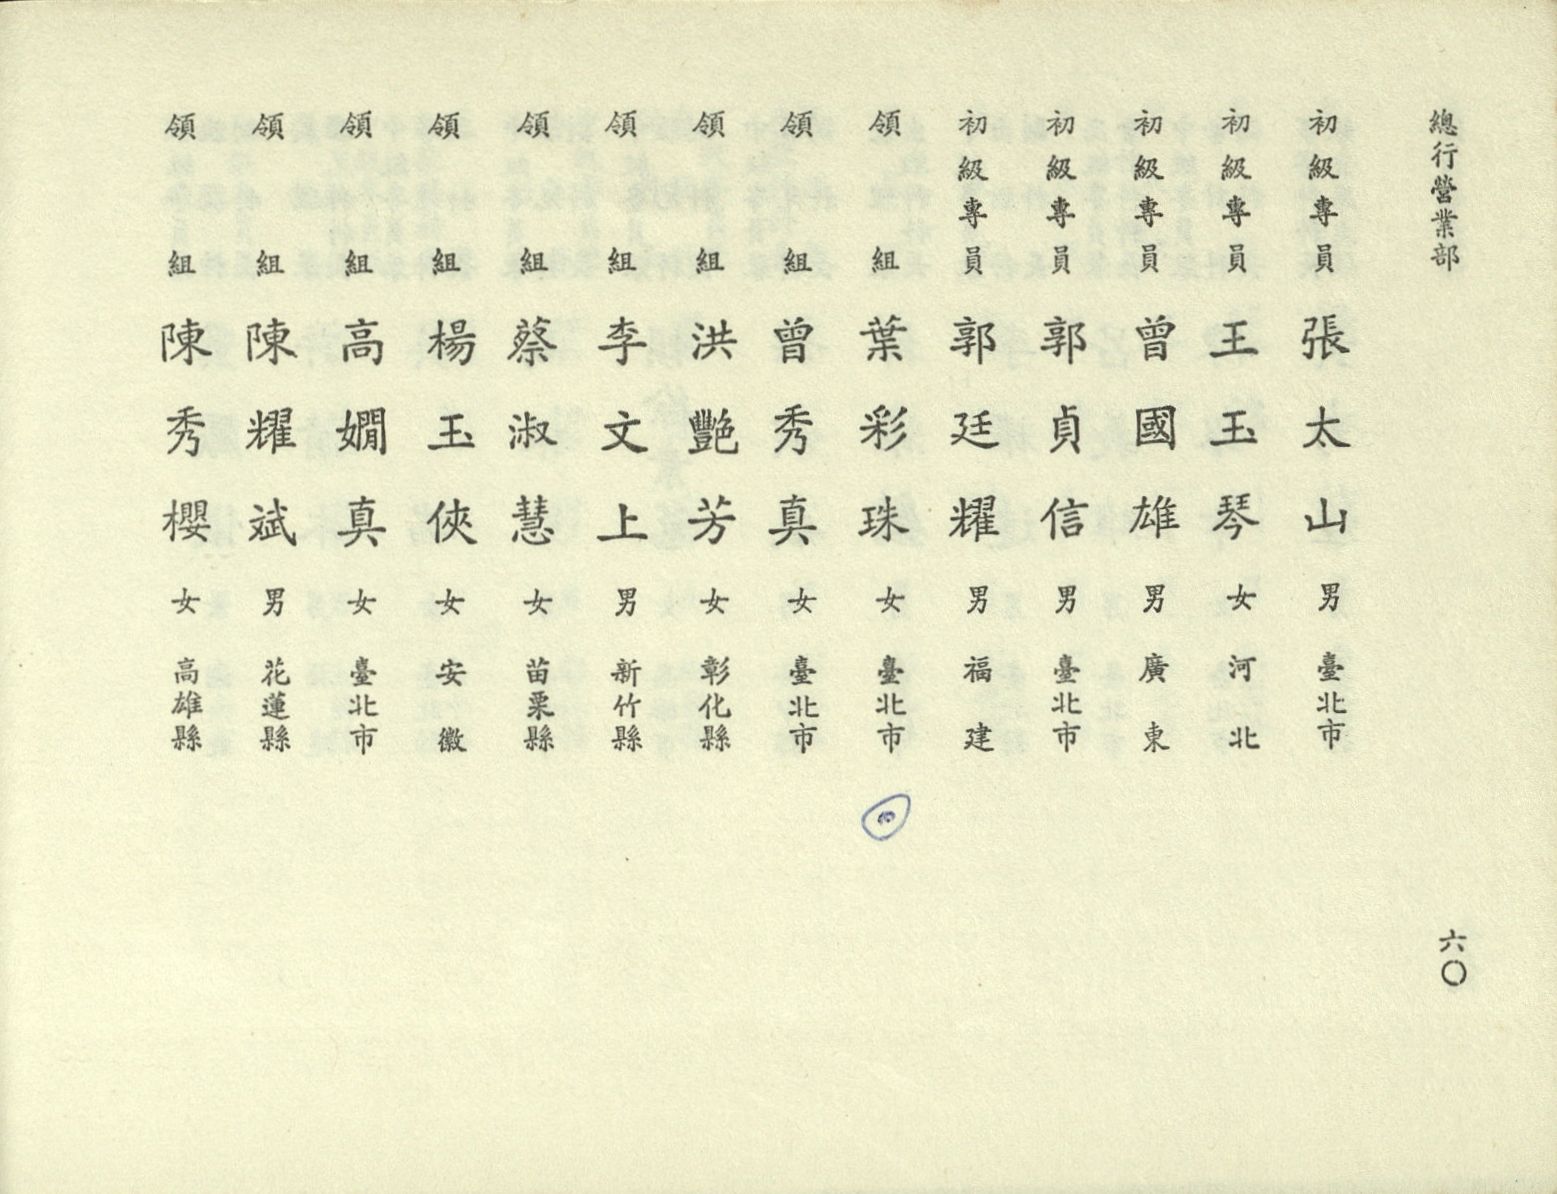 總行營業部
六〇
初級專員 張太山 男 臺北市
初級專員 王玉琴 女 河北
初級專員 曾國雄 男 廣東
初級專員 郭貞信 男 臺北市
初級專員 郭廷耀 男 福建
領組 葉彩珠 女 臺北市
領組 曾秀真 女 臺北市
領組 洪艷芳 女 彰化縣
領組 李文上 男 新竹縣
領組 蔡淑慧 女 苗栗縣
領組 楊玉俠 女 安徽
領組 高嫺真 女 臺北市
領組 陳耀斌 男 花蓮縣
領組 陳秀櫻 女 高雄縣